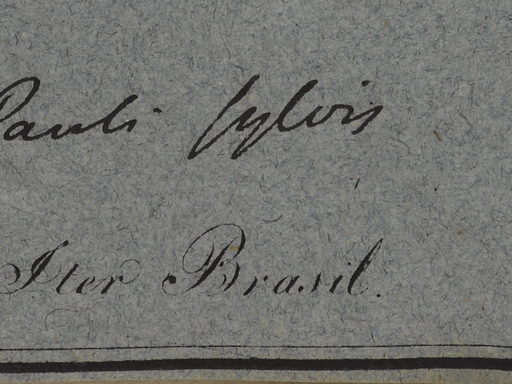 Pauli sylvis
Iter Brasil.